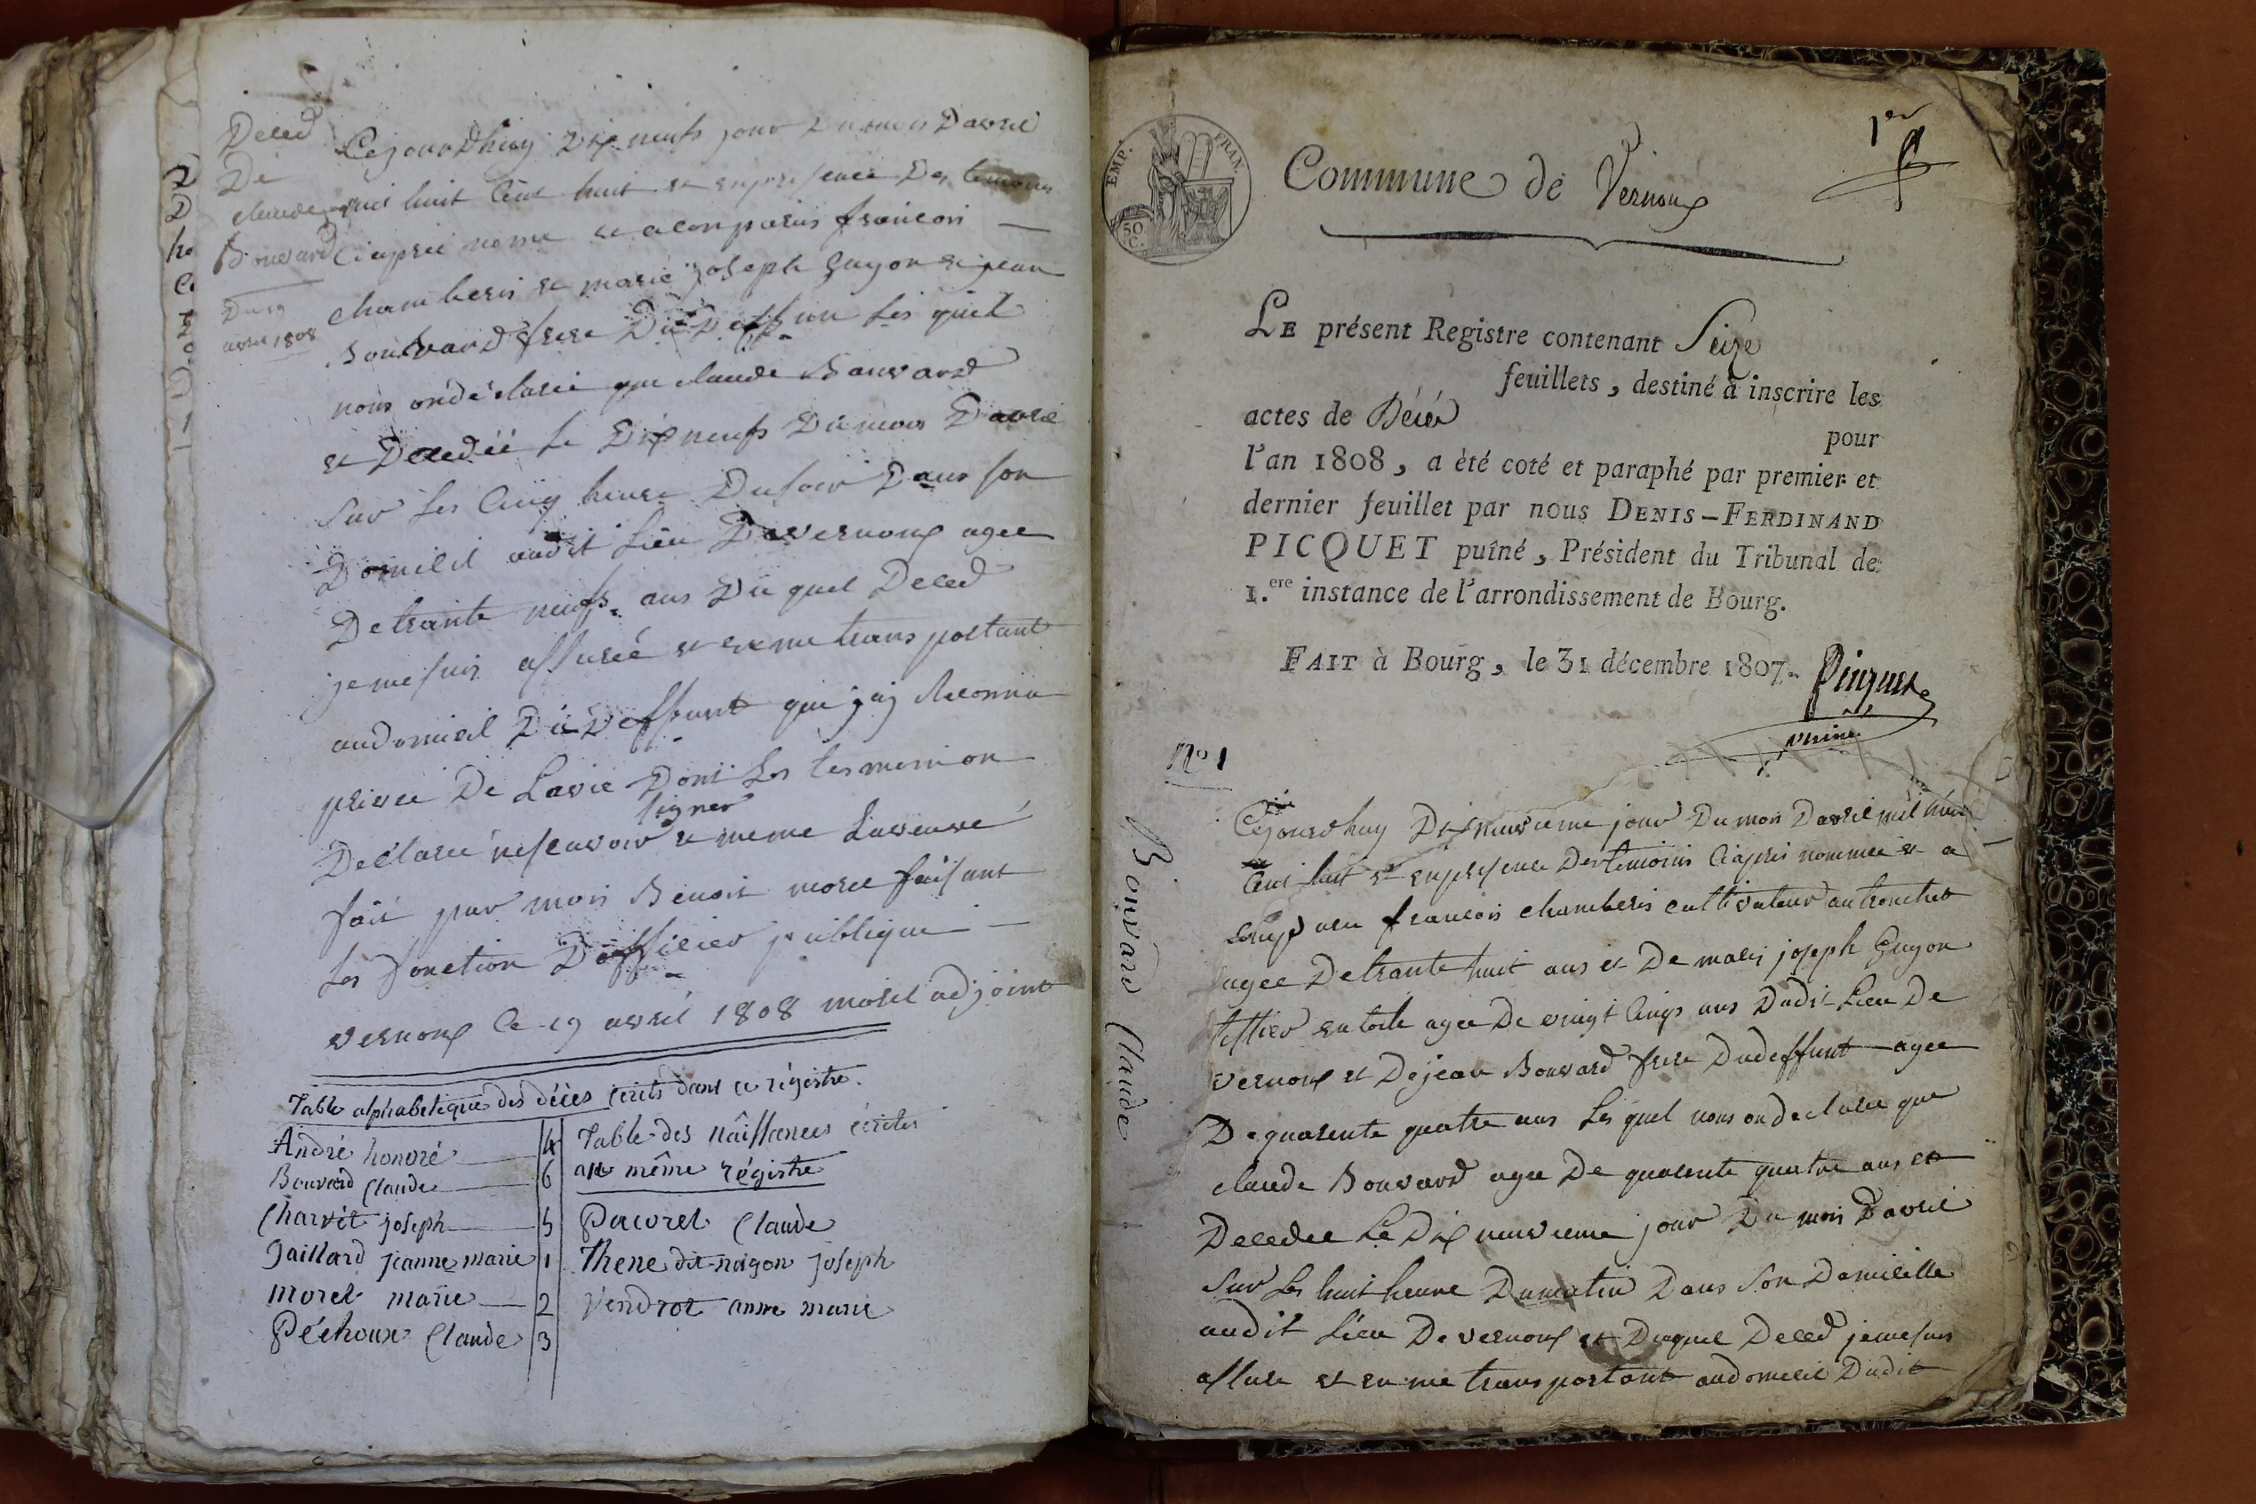 Deced
De
claude
Bouvard
Du 19
avril 1808
Cejourdhuy Dix neufs jour Du mois Davril
mil huit Cent huit et en presence Des temoins
Ciaprée nomé et a comparus francois
chamberis et marie joseph Guyon et jean
Bouvard frere Du Deffun les quel
nous on déclaréé que claude Bouvard
et Decedéé le Dix neufs Du mois Davril
Sur les Cinq heure Du soir Dans son
Domicil audit lieu De vernoux agee
De trante neufs ans Du quel Deced
je me suis assuréé et en me trans portant
au domicil Du Deffunt que jaj Reconnu
privée De Lavie Dont les tesmemion
signer
Declaréé ne scavoir et meme la veuve
fait par moi Benoit morel faisant
les fonction Dofficier publique
vernoux Ce 19 avril 1808 morel adjoint
Table alphabetique des décès écrits dans ce régistre.
André honoré 4
Bouvard Claude 6
Charvét joseph 5
Gaillard jeanne marie 1
morel marie 2
Péchoux Claude 3
Table des naissances écrites
au même régistre
Pacoret Claude
Thene dit nigon joseph
Vendrot anne marie
EMP. FRAN.
50 C.
1er
Commune de Vernoux
LE présent Registre contenant Seize
feuillets, destiné à inscrire les
actes de Décès pour
l'an 1808, a été coté et paraphé par premier et
dernier feuillet par nous DENIS-FERDINAND
PICQUET puîné, Président du Tribunal de
1.ere instance de l'arrondissement de Bourg.
FAIT à Bourg, le 31 décembre 1807.
Picquet
puiné
No 1
Bouvard Claude
Cejourdhuy Dixneuvieme jour Du mois Davril mil huit
Cent huit et en presence Des temoins Ciaprés nommée et a
Comparu francois chamberis cultivateur au tronchet
agee De trante huit ans et De marie joseph Guyon
tissier en toile agee De vingt Cinqs ans Dudit lieu De
vernoux et De jean Bouvard frere Dudeffunt agee
De quarente quatre ans les quel nous on declaree que
claude Bouvard agee De quarente quatre ans et
Decedee Le Dix neuvieme jour Du mois Davril
Sur les huit heure Dumatin Dans son Domicille
audit lieu De vernoux et Duquel Deced je me suis
assure et en me transportant au domicil Dudit